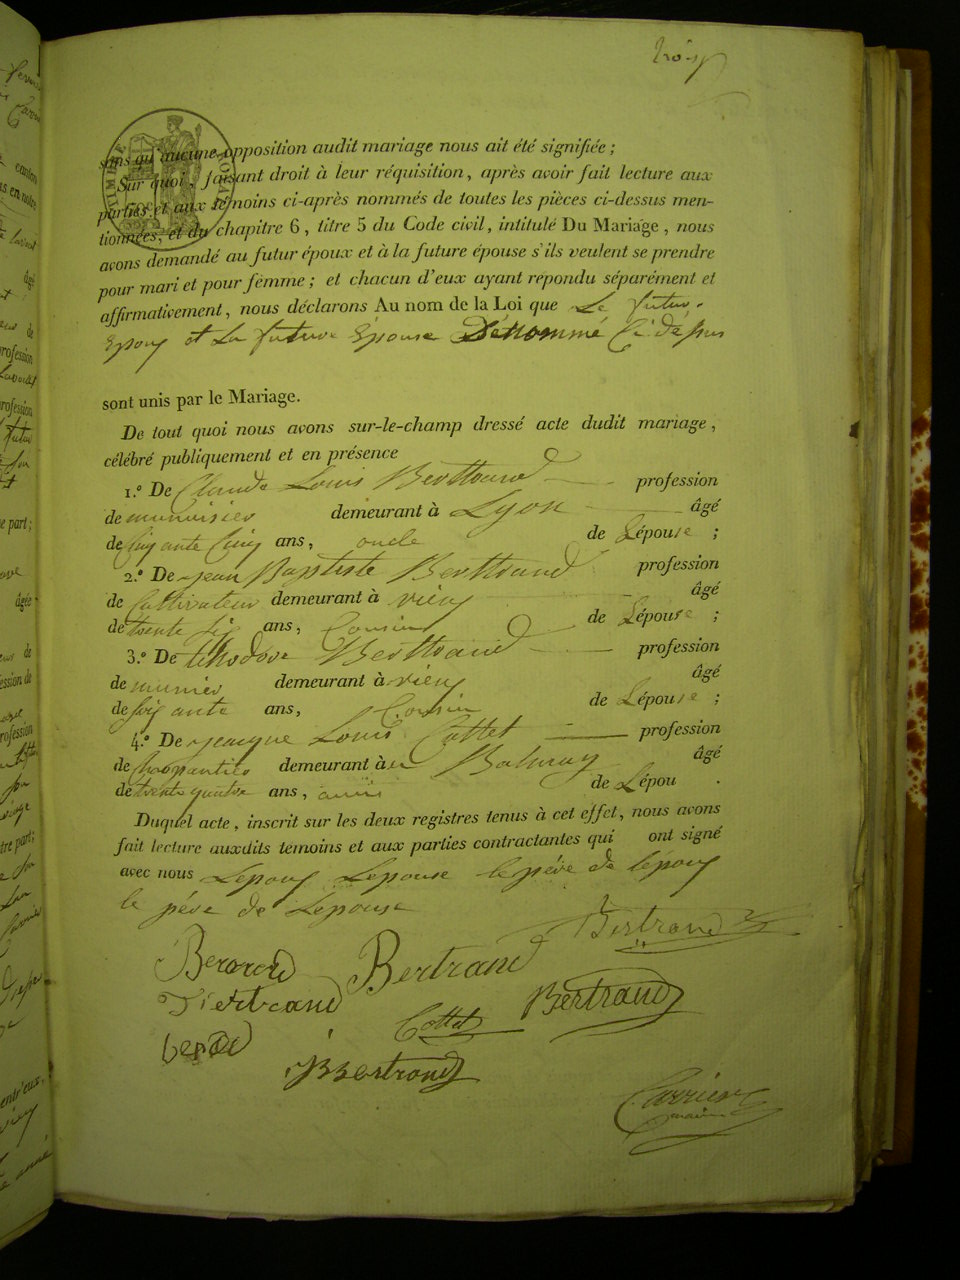 trois
sans qu'aucune opposition audit mariage nous ait été signifiée ;
Sur quoi, faisant droit à leur réquisition, après avoir fait lecture aux
parties et aux témoins ci-après nommés de toutes les pièces ci-dessus men-
tionnées, et du chapitre 6, titre 5 du Code civil, intitulé Du Mariage, nous
avons demandé au futur époux et à la future épouse s'ils veulent se prendre
pour mari et pour femme ; et chacun d'eux ayant répondu séparément et
affirmativement, nous déclarons Au nom de la Loi que Le futur
Epoux et La future Epouse Dénommé Ci dessus
sont unis par le Mariage.
De tout quoi nous avons sur-le-champ dressé acte dudit mariage,
célébré publiquement et en présence
1.º De Claude Louis Berttrand profession
de menuisier demeurant à Lyon âgé
de ans, oncle de Lépouse ;
2.º De jean Baptiste Berttrand profession
de Cultivateur demeurant à vieu âgé
de trente six ans, Cousin de Lépouse ;
3.º De Berttrand profession
de munier demeurant à vieu âgé
de soixante ans, Cousin de Lépouse ;
4.º De jacque Louis Cottet profession
de Charpantier demeurant à âgé
de trente quatre ans, amis de Lépou .
Duquel acte, inscrit sur les deux registres tenus à cet effet, nous avons
fait lecture auxdits temoins et aux parties contractantes qui ont signé
avec nous Lepoux Lepouse le père de lépoux
le père de Lépouse
Bertrand
Berard Bertrand
Bertrand Bertrand
Cottet
Bertrand
Carrier
maire